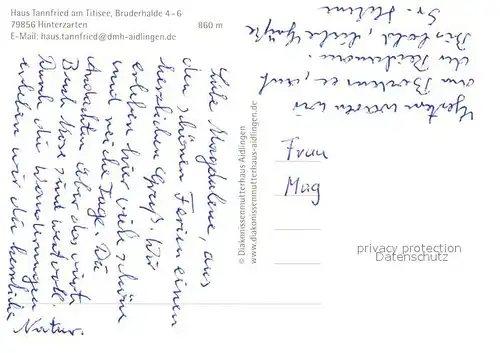 Haus Tannfried am Titisee, Bruderhalde 4–6
79856 Hinterzarten 860 m
E-Mail: haus.tannfried@dmh-aidlingen.de
Liebe Magdalene, aus
den schönen Ferien einen
herzlichen Gruß. Wir
erleben hier viel schöne
und reiche Tage. Die
Andachten über das vierte
Buch Mose sind wertvoll.
Durch die Wanderungen
erleben wir die herrliche
Natur.
Gestern waren wir
am
Bis bald, liebe Grüße
Sr. Helene
© Diakonissenmutterhaus Aidlingen
www.diakonissenmutterhaus-aidlingen.de
Frau
Mag
privacy protection
Datenschutz